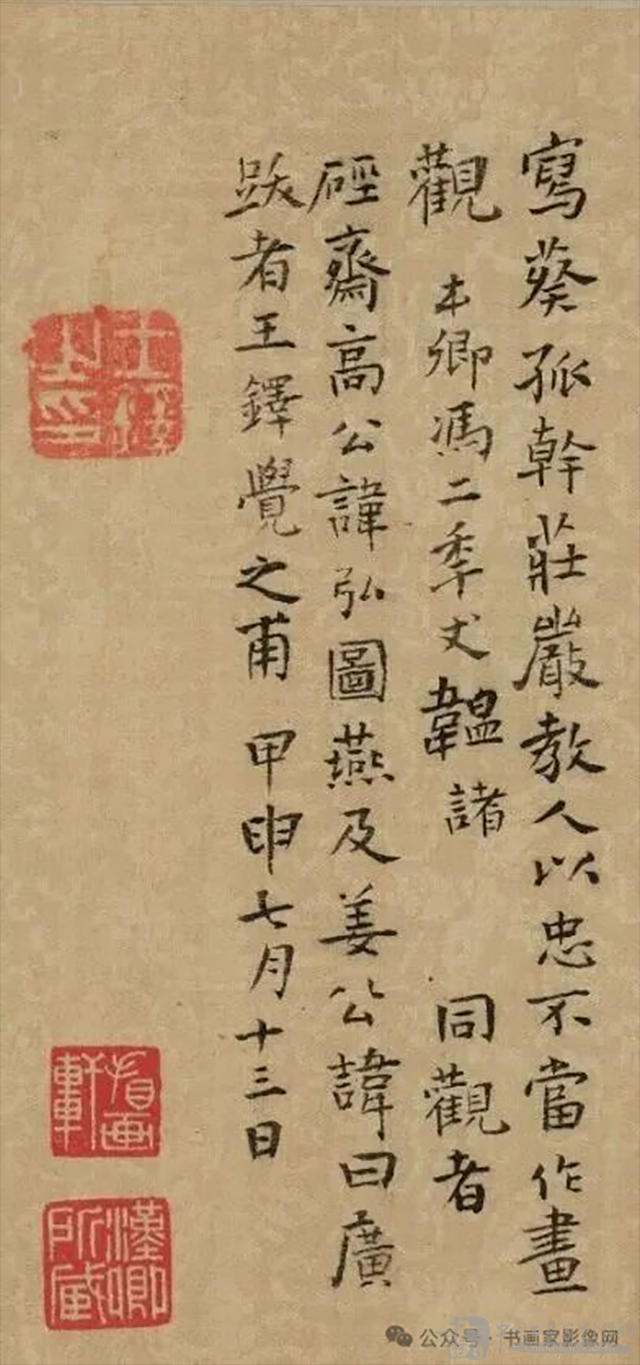 寫葵孤幹莊嚴教人以忠不當作畫
觀 本卿馮二季丈韞諸 同觀者
硜齋高公諱弘圖燕及姜公諱曰廣
跋者王鐸覺之甫 甲申七月十三日
王鐸之印
指画軒
漢卿所藏
公众号·书画家影像网